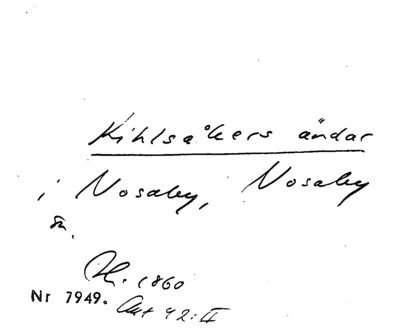 Kihlsåkers ändar
i Nosaby, Nosaby
sn.
1860
Nr 7949. Akt 42:II